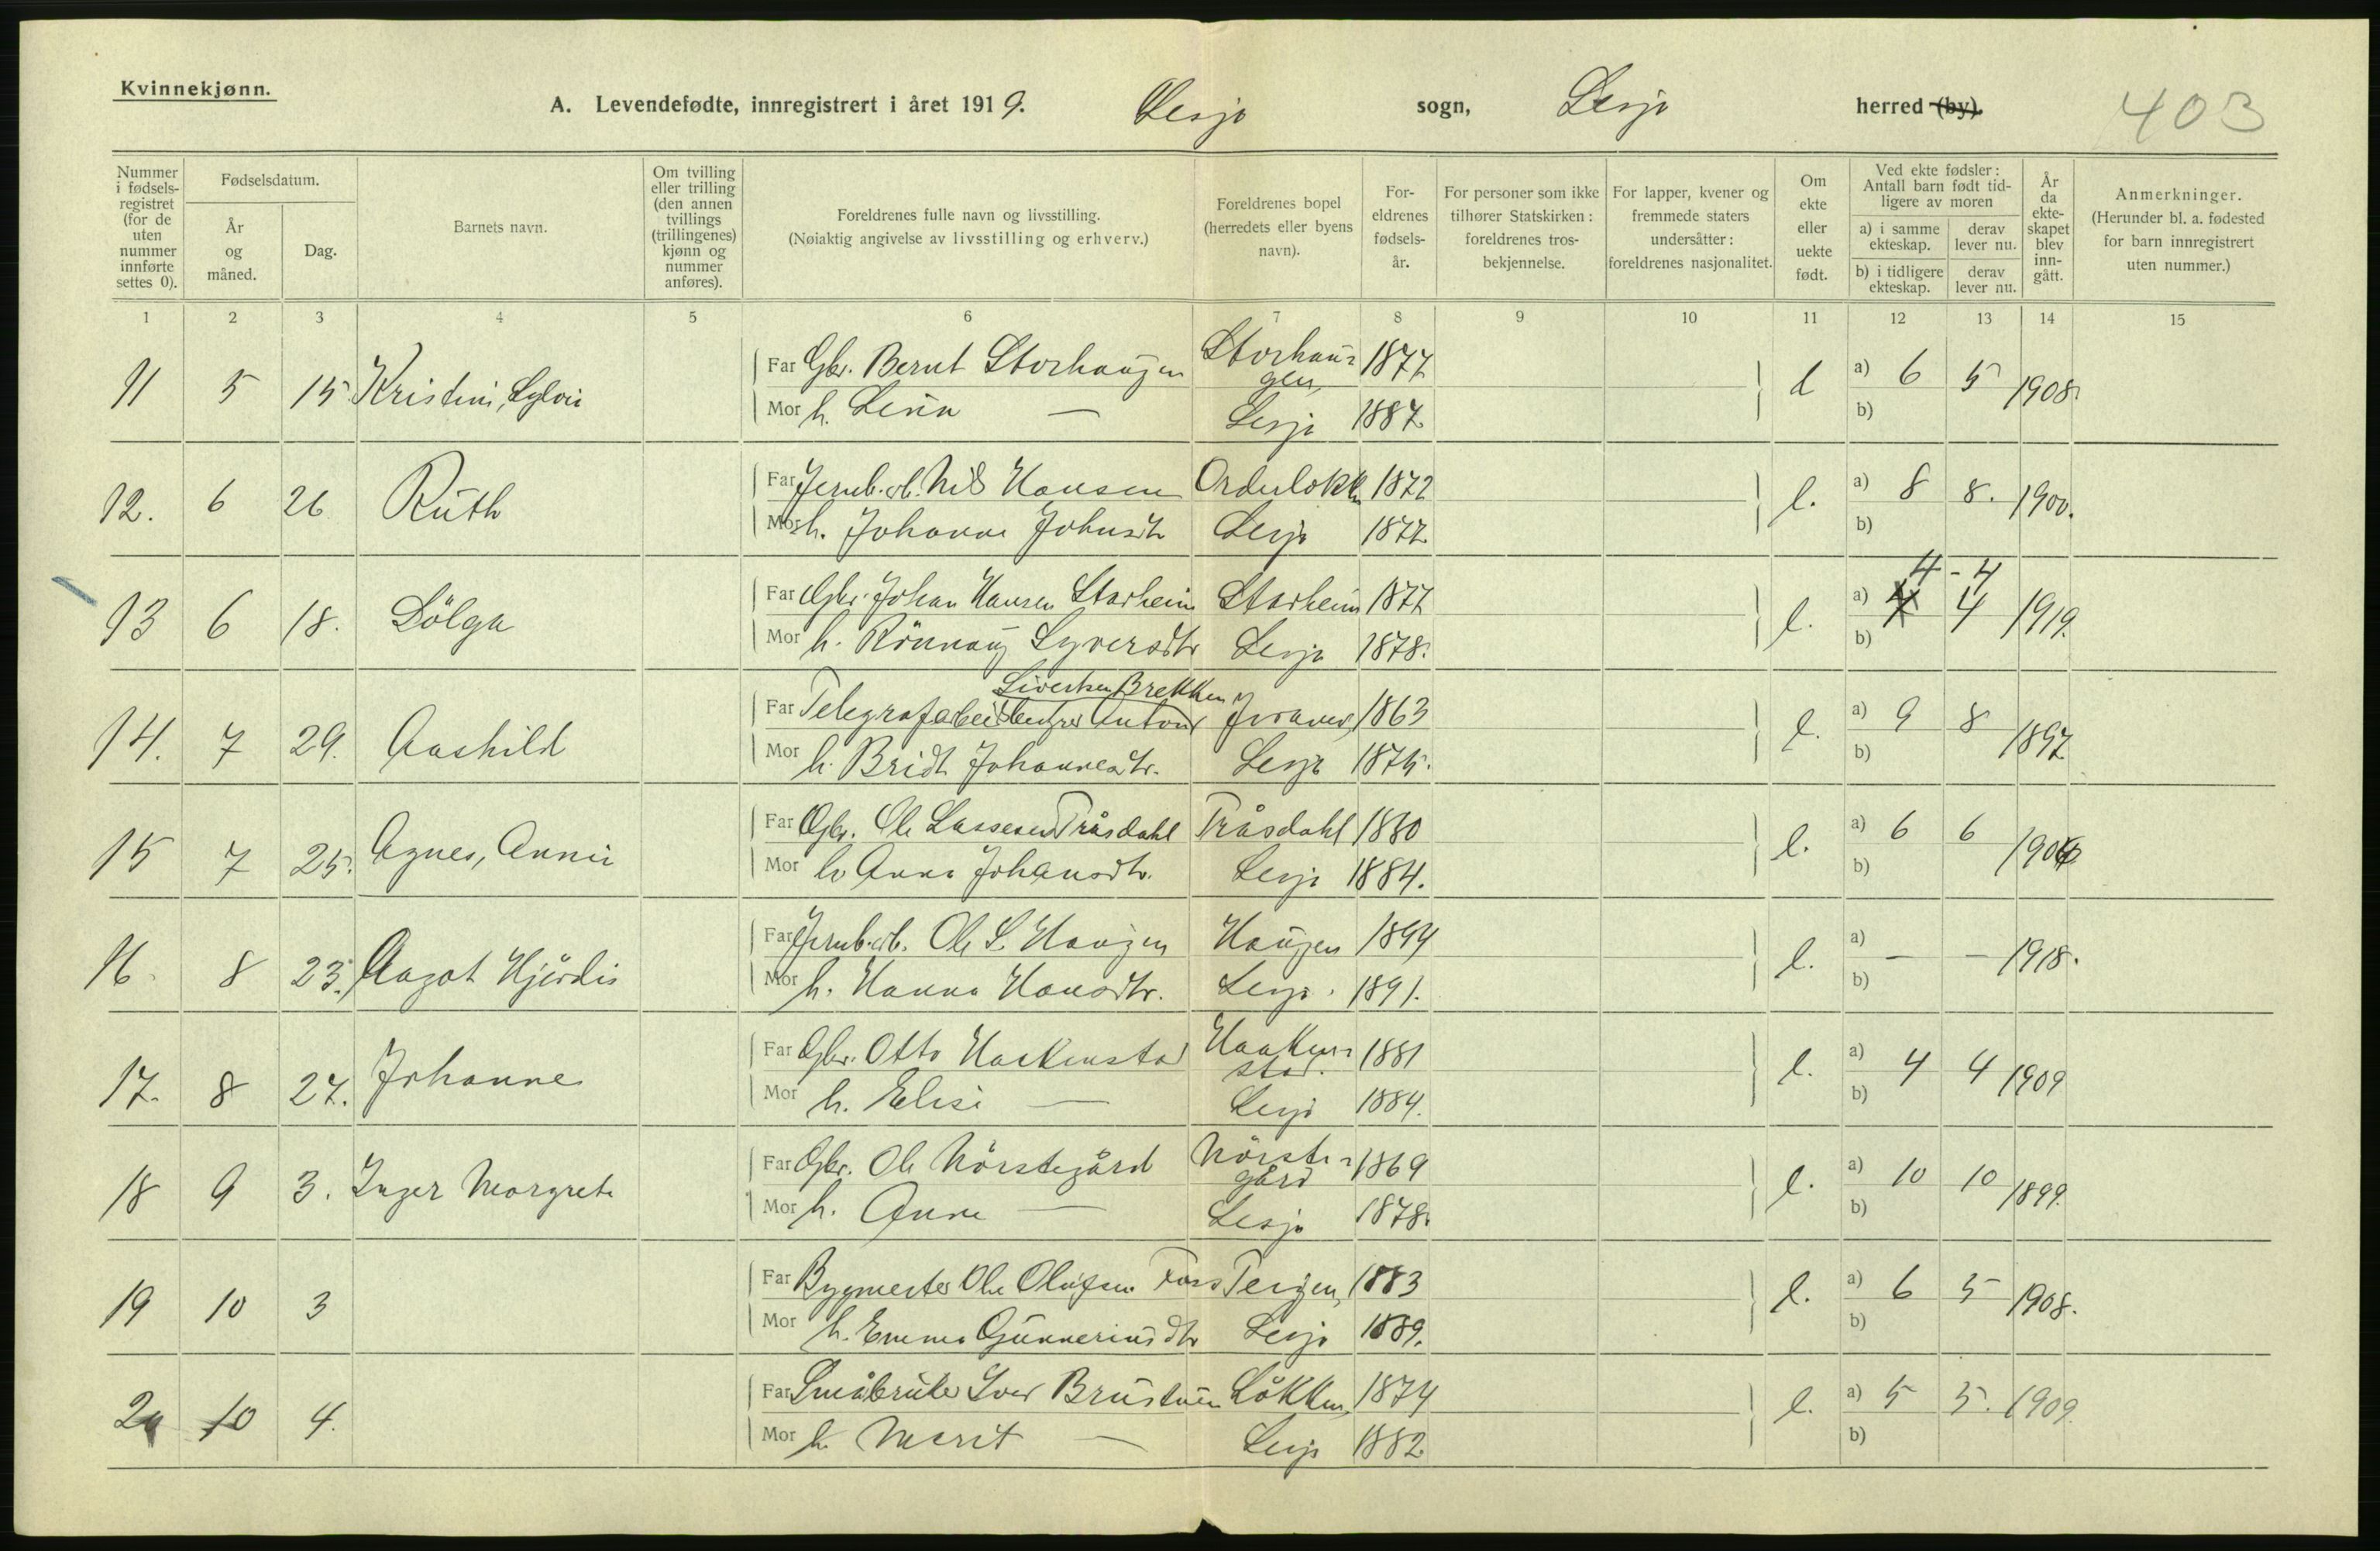 Kvinnekjønn.
A. Levendefødte, innregistrert i året 1919. Lesja sogn, Lesja herred (by). 403
Nummer i fødsels-registret (for de uten nummer innførte settes 0).
Fødselsdatum.
År og måned.
Dag.
Barnets navn.
Om tvilling eller trilling (den annen tvillings (trillingenes) kjønn og nummer anføres).
Foreldrenes fulle navn og livsstilling.
(Nøiaktig angivelse av livsstilling og erhverv.)
Foreldrenes bopel (herredets eller byens navn).
For-eldrenes fødsels-år.
For personer som ikke tilhører Statskirken: foreldrenes tros-bekjennelse.
For lapper, kvener og fremmede staters undersåtter: foreldrenes nasjonalitet.
Om ekte eller uekte født.
Ved ekte fødsler: Antall barn født tid-ligere av moren
a) i samme ekteskap.
derav lever nu.
b) i tidligere ekteskap.
derav lever nu.
År da ekte-skapet blev inn-gått.
Anmerkninger.
(Herunder bl. a. fødested for barn innregistrert uten nummer.)
1 2 3 4 5 6 7 8 9 10 11 12 13 14 15
11 5 15 Kristine, Sylvi Far Gbr. Bernt Storhaugen Storhau-gen, 1877 a) 6 5 1908.
Mor h. — Lesja 1887. b)
12. 6 26 Ruth Far Jernb.arb. Nils Hansen 1872 l. a) 8 8. 1900.
Mor h. Johanne Johnsdtr Lesja 1877. b)
4 - 4
13 6 18. Sölga Far Gbr. Johan Hansen Storheim Storheim 1877 l. a) 4 4 1919.
Mor h. Rönnaug Syversdtr Lesja 1878. b)
Sivertsen Brekken
14. 7 29. Aashild Far Anton 1863 l. a) 9 8 1897
Mor h. Bridt Johannesdtr. Lesja 1875. b)
15 7 25. Agnes, Annie Far Gbr. Ole Lassesen Tråsdahl Tråsdahl 1880 l. a) 6 6
Mor h. Anna Johansdtr. Lesja 1884. b)
16 8 23. Aagot Hjördis Far Jernb.arb. Ole S. Haugen Haugen 1894 l. a) - - 1918.
Mor h. Hanna Hansdtr. Lesja. 1891. b)
17. 8 27. Johanne Far Gbr. Otto Haakenstad Haaken-stad. 1881 l. a) 4 4 1909
Mor h. Elise — Lesja 1884. b)
18 9 3. Inger Margrete Far Gbr. Ole Nörstegård Nörste-gård 1869 l. a) 10 10 1899.
Mor h. Anne — Lesja 1878. b)
19 10 3 Far Bygmester Ole Olufsen Foss 1883 l. a) 6 5 1908.
Mor h. Emma Gunneriusdtr Lesja 1889. b)
20 10 4. Far Småbruker Iver Brustuen Lökken, 1874 l. a) 5 5. 1909.
Mor h. Marit — Lesja 1882 b)